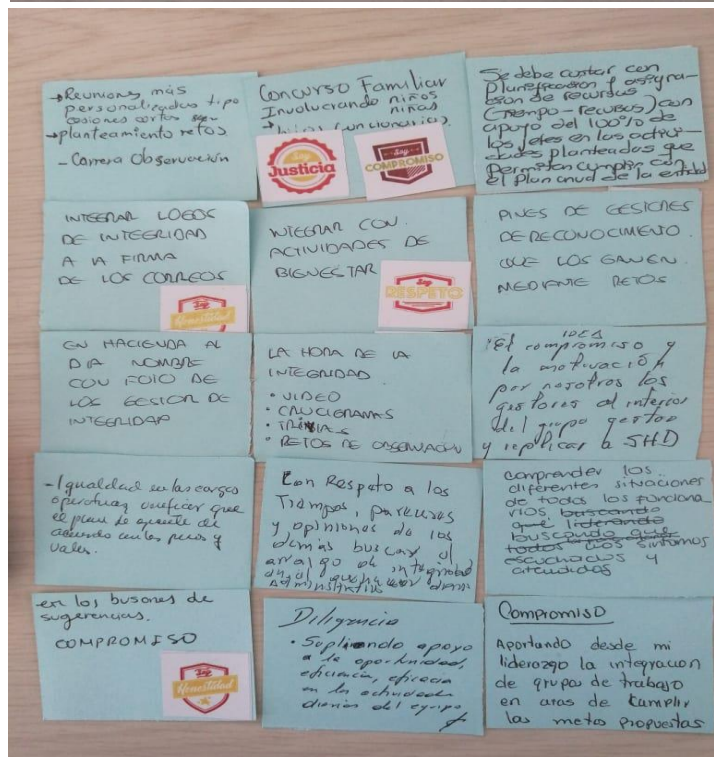 →Reuniones más
personalizadas tipo
cesiones cortas
→planteamiento retos
- Carrera Observación
Concurso Familiar
Involucrando niños
niñas
hijos funcionarios.
Soy
Justicia
Soy
COMPROMISO
Se debe contar con
Planificación y asigna-
ción de recursos
(Tiempo - recursos) con
apoyo del 100% de
los jefes en las activi-
dades planteadas que
Permitan cumplir con
el plan anual de la entidad
INTEGRAR LOGOS
DE INTEGRIDAD
A LA FIRMA
DE LOS CORREOS
Soy
Honestidad
INTEGRAR CON
ACTIVIDADES DE
BIENESTAR
Soy
RESPETO
PINES DE GESTORES
DE RECONOCIMIENTO.
QUE LOS GANEN
MEDIANTE RETOS
EN HACIENDA AL
DIA NOMBRE
CON FOTO DE
LOS GESTOR DE
INTEGRIDAD
LA HORA DE LA
INTEGRIDAD
• VIDEO
• CRUCIGRAMAS
• TRIVIAS
• RETOS DE OBSERVACIÓN
IDEA
"El compromiso y
la motivación
por nosotros los
gestores al interior
del grupo gestor
y replicar a SHD
- Igualdad en las cargas
operativas verificar que
el plan se ajuste de
acuerdo con los
Con Respeto a los
Tiempos, posturas
y opiniones de los
demás buscar el
arraigo de integridad
en el quehacer diario
Administrativo
comprender los
diferentes situaciones
de todos los funciona
rios buscando
que liderando
buscando que
todos nos sintamos
escuchados y
atendidos
en los busones de
sugerencias.
COMPROMISO
Soy
Honestidad
Diligencia
• Supliendo apoyo
a la oportunidad,
eficiencia, eficacia
en las actividades
diarias del equipo
Compromiso
Aportando desde mi
liderazgo la integracion
de grupos de trabajo
en aras de cumplir
las metas propuestas